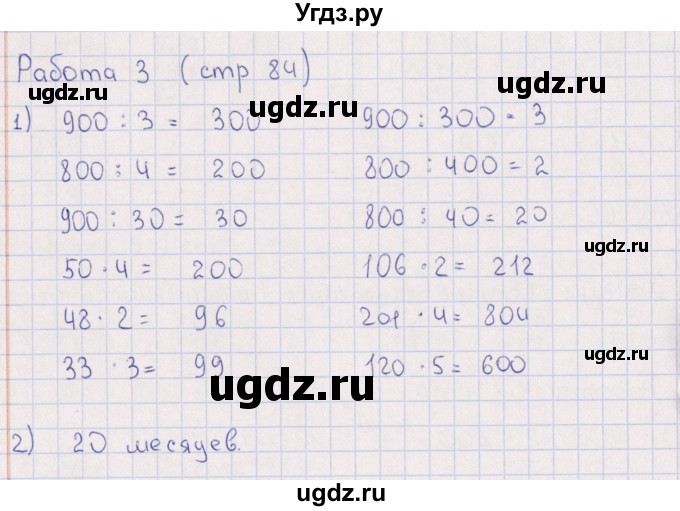 Угдз.ру
Работа 3 (стр 84)
ugdz.ru
ugdz.ru
1) 900 : 3 = 300 900 : 300 = 3
ugdz.ru
ugdz.ru
800 : 4 = 200 800 : 400 = 2
900 : 30 = 30 800 : 40 = 20
ugdz.ru
50 · 4 = 200 106 · 2 = 212
48 · 2 = 96 201 · 4 = 804
33 · 3 = 99 120 · 5 = 600
ugdz.ru
ugdz.ru
2) 20 месяцев.
ugdz.ru
ugdz.ru